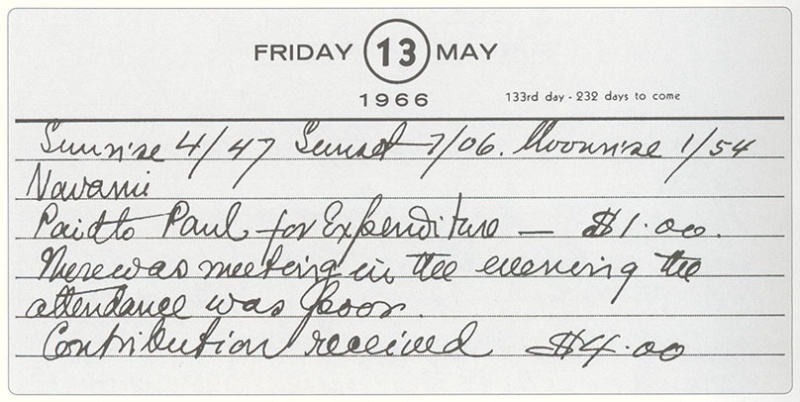 FRIDAY 13 MAY
1966
133rd day - 232 days to come
Sunrise 4/47 Sunset 7/06. Moonrise 1/54
Navami
Paid to Paul for Expenditure — $1.00.
There was meeting in the evening the
attendance was poor.
Contribution received $4.00